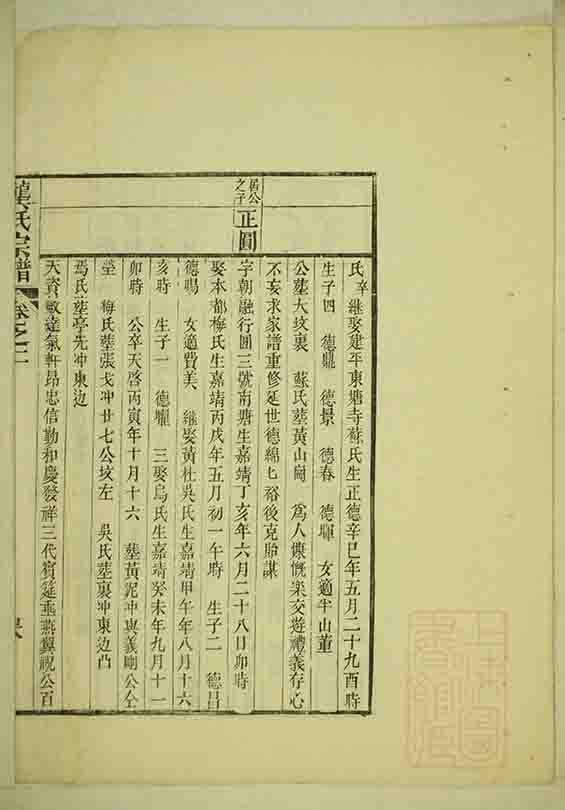 氏卒 継娶建平東塘寺蘇氏生正德辛巳年五月二十九酉時
生子四 德鼎 德景 德春 德暉 女適半山董
公塟大坟裏 蘇氏塟黃山崗 為人慷慨樂交遊禮義存心
不妄求家譜重修延世德綿七裕後克貽謀
居公之子 正圓
字朝融行囲三號南塘生嘉靖丁亥年六月二十八日卯時
娶本都梅氏生嘉靖丙戌年五月初一午時 生子二 德昌
德暘 女適費美 継娶黃杜吳氏生嘉靖甲午年八月十六
亥時 生子一 德曜 三娶烏氏生嘉靖癸未年九月十一
卯時 公卒天啓丙寅年十月十六 塟黃泥冲與義剛公仝
塋 梅氏塟張戈冲廿七公坟左 吳氏塟裏冲東边凸
烏氏塟亭先冲東边
天資敏達氣軒昂忠信勤和慶發祥三代賓筵垂燕翼視公百
龔氏宗譜 卷之二
上海圖書館藏